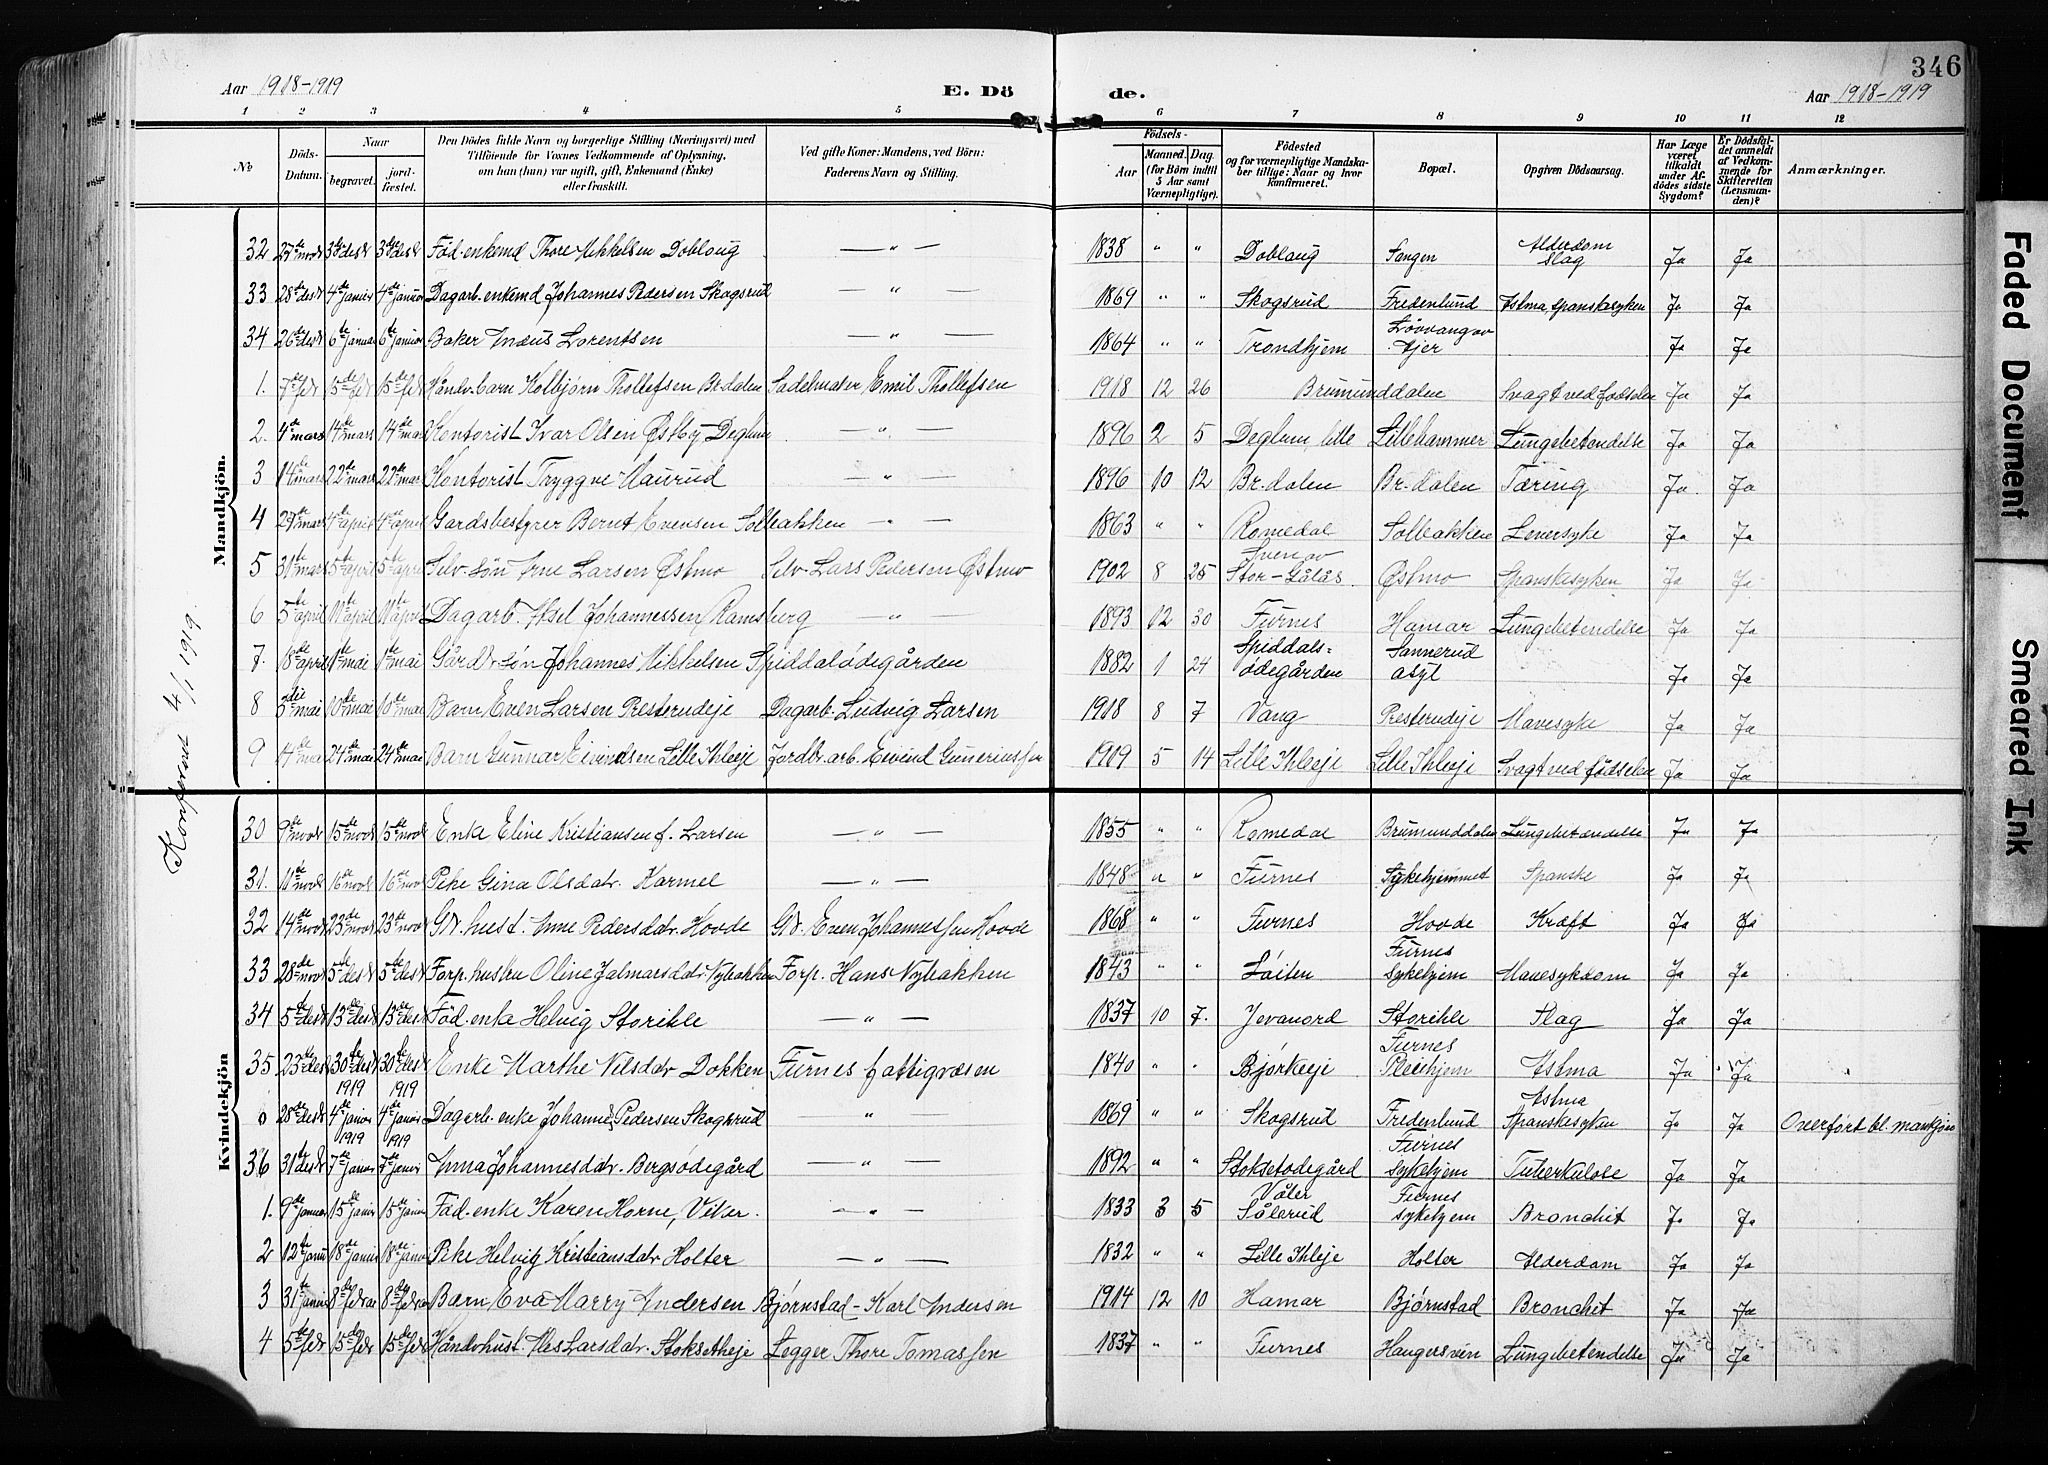 346
Aar 1918-1919
E. Dö
de.
Aar 1918-1919
1 2 3 4 5 6 7 8 9 10 11 12
No
Döds-Datum.
Naar
begravet.
jord-fæstet.
Den Dödes fulde Navn og borgerlige Stilling (Næringsvei) med
Tilföiende for Voxnes Vedkommende af Oplysning,
om han (hun) var ugift, gift, Enkemand (Enke)
eller fraskilt.
Ved gifte Koner: Mandens, ved Börn:
Faderens Navn og Stilling.
Födsels-
Aar
Maaned. Dag.
(for Börn indtil
5 Aar samt
Værnepligtige).
Födested
og for værnepligtige Mandska-
ber tillige: Naar og hvor
konfirmeret.
Bopæl.
Opgiven Dödsaarsag.
Har Læge
været
tilkaldt
under Af-
dödes sidste
Sygdom?
Er Dödsfal-
det anmeldt
af Vedkom-
mende for
Skifteretten
(Lensman-
den)?
Anmærkninger.
Mandkjön.
32 27de novbr 3de desbr 3de desbr Föd. enkemd Thore Mikkelsen Doblaug — " — 1838 " " Doblaug Fangen Alderdom Slag Ja Ja
33 28de desbr 4de januar 4de januar Dagarb. enkemd Johannes Pedersen Skogsrud — " — 1869 " " Skogsrud Fredenlund Astma, spanskesyken Ja Ja
34 26de desbr 6te januar 6te januar Baker Lorentsen — " — 1864 " " Trondhjem Ja Ja
1. 7de febr 15de febr 15de febr Håndv. barn Kolbjørn Thollefsen Br.dalen Sadelmaker Emil Thollefsen 1918 12 26 Brumunddalen Svagt ved fødselen Ja Ja
2. 4de mars 14de mars 14de mars Kontorist Ivar Olsen Østby Deglum — " — 1896 2 5 Deglum, lille Lillehammer Lungebetændelse Ja Ja
3 14de mars 22de mars 22de mars Kontorist Tryggve Maurud — " — 1896 10 12 Br.dalen Br.dalen Tæring Ja Ja
4 27de mars 4de april 4de april Gårdsbestyrer Bernt Evensen Solbakken — " — 1863 " " Romedal Solbakken Leversyke Ja Ja
5 31te mars 5te april 5te april Selv. søn Arne Larsen Østmo Selv. Lars Pedersen Østmo 1902 8 25 Stor-Gålås Østmo Spanskesyken Ja Ja
6 5te april 11te april 11te april Dagarb. Aksel Johannessen Ramsberg — " — 1893 12 30 Furnes Hamar Lungebetændelse Ja Ja
7. 18de april 1te mai 1te mai Gårdbr. søn Johannes Mikkelsen Spiddalødegården 1882 1 24 Spiddals=ødegården Sannerud asyl Ja Ja
8 5te mai 10de mai 10de mai Barn Even Larsen Presterudeje Dagarb. Ludvig Larsen 1918 8 7 Vang Presterudeje Mavesyke Ja Ja
9 14de mai 24de mai 24de mai Barn Gunnar Eivindsen Lille Ihleeje Jordbr. arb. Eivind Guneriussen 1919 5 14 Lille Ihleeje Lille Ihleeje Svagt ved fødselen Ja Ja
Konferert 4/1 1919.
Kvindekjön
30 9de novbr 15de novbr 15de novbr Enke Eline Kristiansen f. Larsen — " — 1855 " " Romedal Brumunddalen Lungebetændelse Ja Ja
31. 11te novbr 16de novbr 16de novbr Pike Gina Olsdatr. Karmel — " — 1848 " " Furnes Sykehjemmet Spanske Ja Ja
32 14de novbr 23de novbr 23de novbr Gb. hust. Anne Pedersdatr. Hovde Gb. Even Johannessen Hovde 1868 " " Furnes Hovde Kræft Ja Ja
33 28de novbr 5te desbr 5te desbr Forp. hustru Oline Jalmarsdatr Nybakken Forp. Hans Nybakken 1843 " " Løiten Furnes sykehjem Mavesykdom Ja Ja
34 5te desbr 13de desbr 13de desbr Föd. enke Helvig Storihle — " — 1837 10 7. Jevanord Storihle Slag Ja Ja
35 23de desbr 30te desbr 30te desbr Enke Marthe Nilsdatr Dokken Furnes fattigvæsen 1840 " " Bjørkeeje Furnes Pleiehjem Astma Ja Ja
0 28de desbr 1919 4de januar 1919 4de januar Dagarb. enke Johannes Pedersen Skogsrud — " — 1869 " " Skogsrud Fredenlund Astma Spanskesyken Ja Ja Overført bl. mankjøn
36 31te desbr 1919 7de januar 1919 7de januar Anna Johannesdatr. Bergsødegård — " — 1892 " " Stoksetødegård Furnes sykehjem Tuberkulose Ja Ja
1. 9de januar 15de januar 15de januar Föd. enke Karen Horne, Viker. — " — 1833 3 5 Våler Sålerud Furnes sykehjem Bronchit Ja Ja
2 12te januar 18de januar 18de januar Pike Helvig Kristiansdatr Holter — " — 1832 " " Lille Ihleje Holter Alderdom Ja Ja
3 31te januar 8de febr 8de febr Barn Eva Marry Andersen Bjørnstad - Karl Andersen 1914 12 10 Hamar Bjørnstad Bronchit Ja Ja
4 5te febr 15de febr 15de febr Håndv. hust. Larsdatr. Stoksetheje Legger Thore Tomassen 1837 " " Furnes Haugersveen Lungebetændelse Ja Ja
Faded Document
Smeared Ink